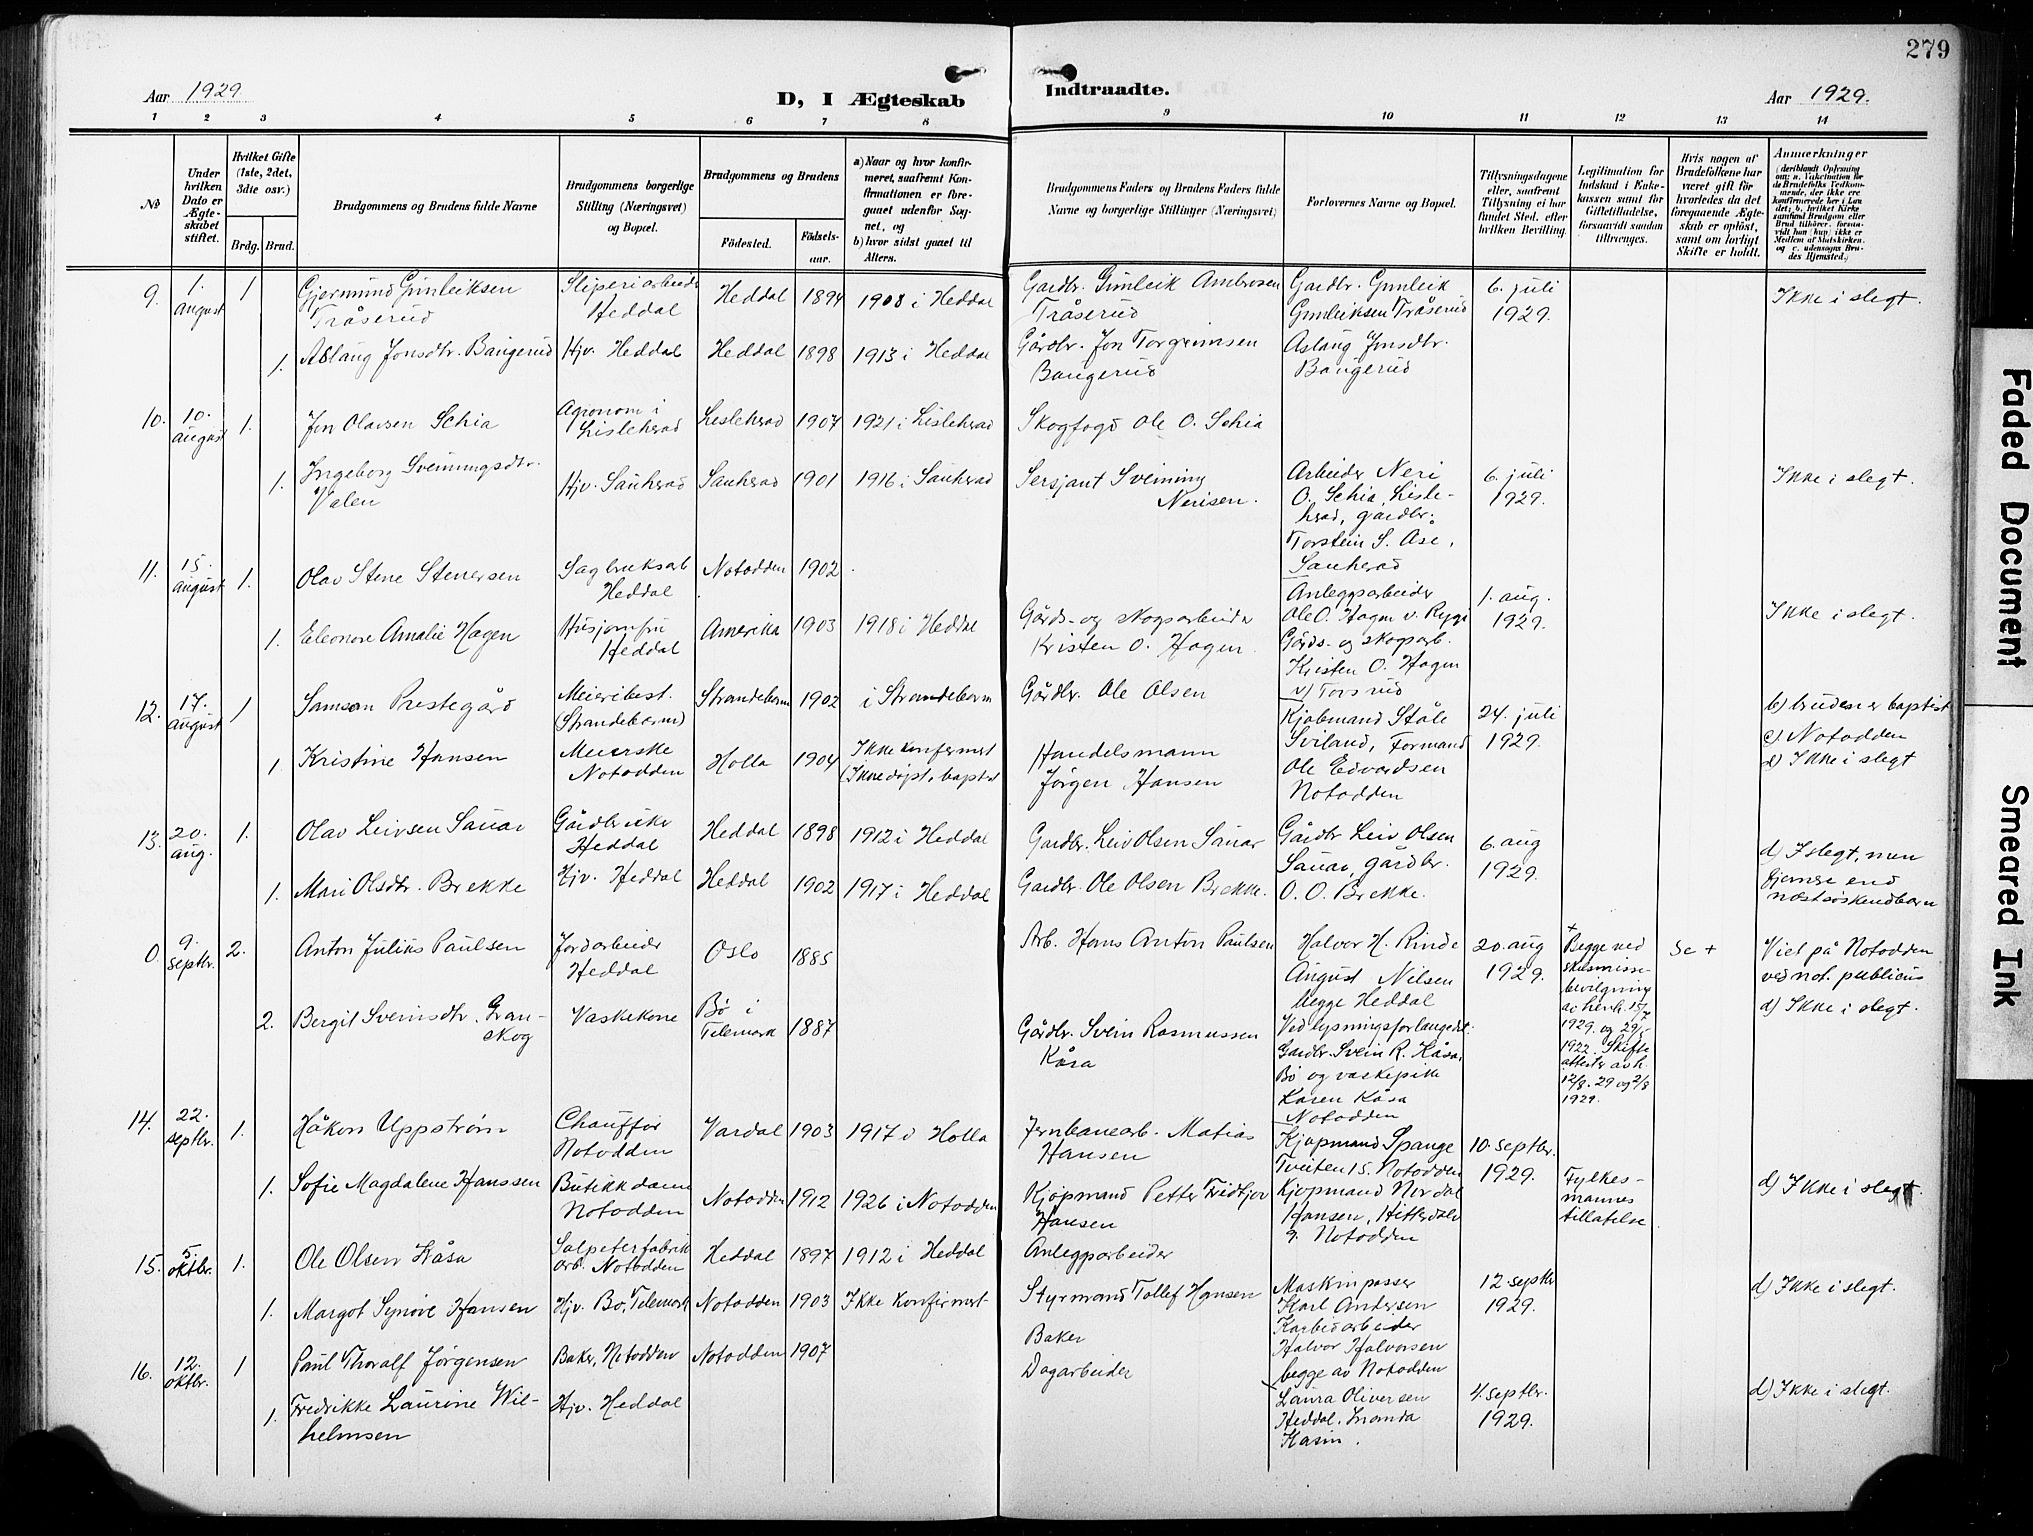 279
Aar 1929
D, I Ægteskab
Indtraadte.
Aar 1929.
1 2 3 4 5 6 7 8 9 10 11 12 13 14
No
Under hvilken Dato er Ægteskabet stiftet.
Hvilket Gifte (1ste, 2det, 3die osv.)
Brdg. Brud.
Brudgommens og Brudens fulde Navne
Brudgommens borgerlige Stilling (Næringsvei) og Bopæl.
Brudgommens og Brudens
Födested.
Födsels-aar.
a) Naar og hvor konfirmeret, saafremt Konfirmationen er foregaaet udenfor Sognet, og
b) hvor sidst gaaet til Alters.
Brudgommens Faders og Brudens Faders fulde Navne og borgerlige Stillinger (Næringsvei)
Forlovernes Navne og Bopæl.
Tillysningsdagene eller, saafremt Tillysning ei har fundet Sted, efter hvilken Bevilling.
Legitimation for Indskud i Enkekassen samt for Giftetilladelse, forsaavidt saadan tiltrænges.
Hvis nogen af Brudefolkene har været gift för hvorledes da det foregaaende Ægteskab er oplöst, samt om lovligt Skifte er holdt.
Anmærkninger (deriblandt Oplysning om: a. Vakcination for de Brudefolks Vedkommende, der ikke ere konfirmerede her i Landet; b. hvilket Kirkesamfund Brudgom eller Brud tilhörer, forsaavidt han (hun) ikke er Medlem af Statskirken, og c. udensogns Brudes Hjemsted.)
9. 1. august 1 Gjermund Gunleiksen Tråserud Sliperiarbeider Heddal Heddal 1894 1908 i Heddal Gardbr. Gunleik Ambrosen Tråserud Gardbr. Gunleik Gunleiksen Tråserud 6. juli 1929. Ikke i slegt.
1. Aslaug Jonsdtr. Bangerud Hjv. Heddal Heddal 1898 1913 i Heddal Gårdbr. Jon Torgrimsen Bangerud Aslaug Jonsdtr. Bangerud
10. 10. august 1. Jon Olavsen Schia Agronom i Lislehrad Lislehrad 1907 1921 i Lislehrad Skogfogd Ole O. Schia
1. Ingeborg Sveinungsdtr. Valen Hjv. Sauherad Sauherad 1901 1916 i Sauherad Sersjant Sveinung Nerisen. Arbeider Neri O. Schia, Lislehrad, gårdbr. Torstein S. Ase, Sauherad 6. juli 1929. Ikke i slegt.
11. 15. august 1. Olav Stene Stenersen Sagbruksarb Heddal Notodden 1902
1. Eleonore Amalie Hagen Husjomfru Heddal Amerika 1903 1918 i Heddal Gårds- og skogsarbeider Kristen O. Hagen. Anleggsarbeider Ole O. Hagen v. Rygi Gårds- og skogsarb. Kristen O. Hagen v/ Torsrud 1. aug. 1929. Ikke i slegt.
12. 17. august 1 Samson Prestegård Meieribest. (Strandebarm) Strandebarm 1902 i Strandebarm Gårdbr. Ole Olsen Kjøbmand Ståle Sviland, Formand Ole Edvardsen Notodden 24. juli 1929. b) bruden er baptist
c) Notodden
d) Ikke i slegt
1. Kristine Hansen Meierske Notodden Holla 1904 Ikke konfirmert (Ikke døpt, baptist Handelsmann Jørgen Hansen
13. 20. aug. 1. Olav Leivsen Sauar Gårdbruker Heddal Heddal 1898 1912 i Heddal Gardbr. Leiv Olsen Sauar Gårdbr Leiv Olsen Sauar, gårdbr. O. O. Brekke. 6. aug 1929. d) I slegt, men fjernere end næstsøskendbarn
1. Mari Olsdtr. Brekke Hjv. Heddal Heddal 1902 1917 i Heddal Gardbr. Ole Olsen Brekke.
0. 9. septbr. 2. Anton Julius Paulsen Jordarbeider Heddal Oslo 1885 Arb. Hans Anton Paulsen Halvor H. Rinde August Nilsen begge Heddal 20. aug 1929. + Begge ved skilsmissebevilgning av henh. 15/7 1929. og 29/5 1922. Skifteattester av h. 12/8. 29 og 2/8 1929. Se + Viet på Notodden ved not. publicus
d) Ikke i slegt.
2. Bergit Sveinsdtr. Granskog Vaskekone Bø i Telemark 1887 Gårdbr. Svein Rasmussen Kåsa Ved lysningsforlangedst. Gardbr. Svein R. Kåsa, Bø og vaskepike Karen Kåsa Notodden
14. 22. septbr. 1. Håkon Uppstrøm Chauffør Notodden Vardal 1903 1917 i Holla Jernbanearb. Matias Hansen Kjøpmand Spange Tveiten 15. Notodden 10. septbr. 1929.
1. Sofie Magdalene Hanssen Butikkdame Notodden Notodden 1912 1926 i Notodden Kjøpmand Petter Fridtjov Hansen Kjøpmand Nordal Hansen, Hitterdalv 9. Notodden Fylkesmannes tillatelse d) Ikke i slegt.
15. 5 oktbr. 1. Ole Olsen Kåsa Salpeterfabrikarb. Notodden Heddal 1897 1912 i Heddal Anleggsarbeider
1. Margot Synøve Hansen Hjv. Bø, Telemark Notodden 1903 Ikke konfirmert Styrmand Tollef Hansen Maskinpasser Karl Andersen Karbidarbeider Halvor Halvorsen begge av Notodden 12 septbr 1929. d) Ikke i slegt.
16. 12. oktbr. 1 Paul Thoralf Jørgensen Baker, Notodden Notodden 1907 Baker
1. Fredrikke Laurine Wilhelmsen Hjv. Heddal Dagarbeider Laura Oliversen Heddal. 4. septbr. 1929. d) Ikke i slegt.
Faded Document
Smeared Ink